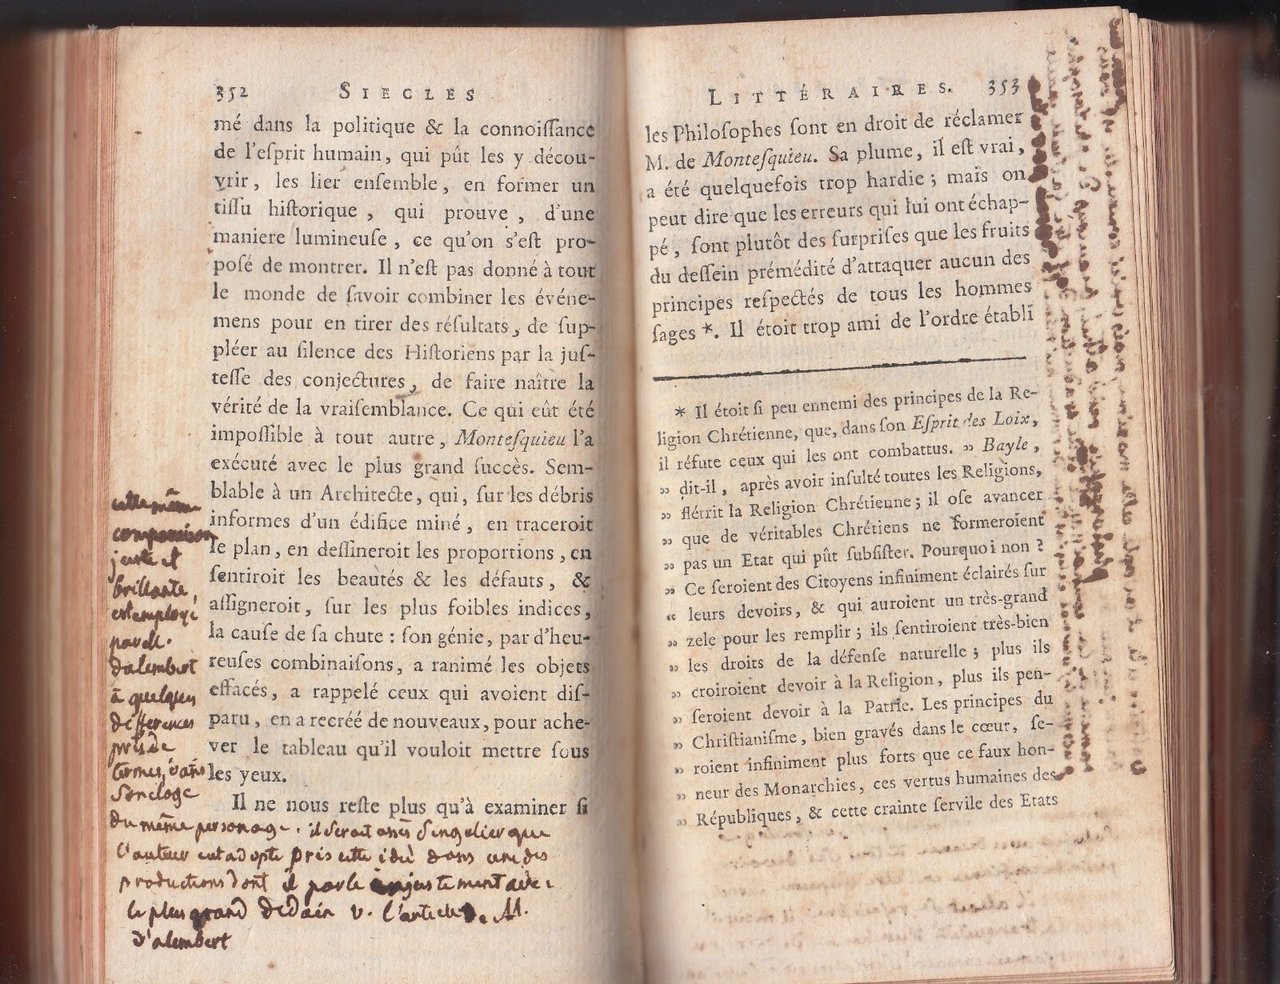 352 SIECLES
mé dans la politique & la connoiſſance
de l'eſprit humain, qui pût les y décou-
vrir, les lier enſemble, en former un
tiſſu hiſtorique, qui prouve, d'une
maniere lumineuſe, ce qu'on s'eſt pro-
poſé de montrer. Il n'eſt pas donné à tout
le monde de ſavoir combiner les événe-
mens pour en tirer des réſultats, de ſup-
pléer au ſilence des Hiſtoriens par la juſ-
teſſe des conjectures, de faire naître la
vérité de la vraiſemblance. Ce qui eût été
impoſſible à tout autre, Monteſquieu l'a
exécuté avec le plus grand ſuccès. Sem-
blable à un Architecte, qui, ſur les débris
informes d'un édifice miné, en traceroit
le plan, en deſſineroit les proportions, en
ſentiroit les beautés & les défauts, &
aſſigneroit, ſur les plus foibles indices,
la cauſe de ſa chute : ſon génie, par d'heu-
reuſes combinaiſons, a ranimé les objets
effacés, a rappelé ceux qui avoient diſ-
paru, en a recréé de nouveaux, pour ache-
ver le tableau qu'il vouloit mettre ſous
les yeux.
Il ne nous reſte plus qu'à examiner ſi
cette même
comparaison
juste et
brillante,
est employé
par
Dalembert
à quelques
differences
près de
termes, dans
Son eloge
du même personage. il serait assés Singulier que
l'auteur eut adopté cette idée dans une des
productions dont il parle injustement avec
le plus grand dedain v. l'article de M.
d'alembert
LITTÉRAIRES. 353
les Philoſophes ſont en droit de réclamer
M. de Monteſquieu. Sa plume, il eſt vrai,
a été quelquefois trop hardie ; mais on
peut dire que les erreurs qui lui ont échap-
pé, ſont plutôt des ſurpriſes que les fruits
du deſſein prémédité d'attaquer aucun des
principes reſpectés de tous les hommes
ſages *. Il étoit trop ami de l'ordre établi
* Il étoit ſi peu ennemi des principes de la Re-
ligion Chrétienne, que, dans ſon Eſprit des Loix,
il réfute ceux qui les ont combattus. » Bayle,
» dit-il, après avoir inſulté toutes les Religions,
» flétrit la Religion Chrétienne ; il oſe avancer
» que de véritables Chrétiens ne formeroient
» pas un Etat qui pût ſubſiſter. Pourquoi non ?
» Ce ſeroient des Citoyens infiniment éclairés ſur
« leurs devoirs, & qui auroient un très-grand
» zele pour les remplir ; ils ſentiroient très-bien
» les droits de la défenſe naturelle ; plus ils
» croiroient devoir à la Religion, plus ils pen-
» ſeroient devoir à la Patrie. Les principes du
» Chriſtianiſme, bien gravés dans le cœur, ſe-
» roient infiniment plus forts que ce faux hon-
» neur des Monarchies, ces vertus humaines des
» Républiques, & cette crainte ſervile des Etats